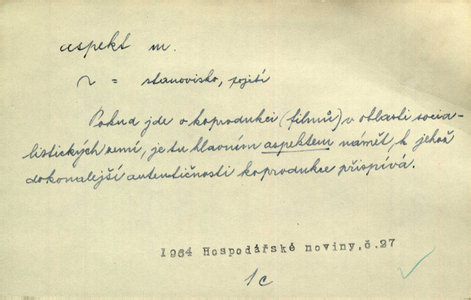 aspekt m.
~ = stanovisko, pojetí
Pokud jde o koprodukci (filmů) v oblasti socia-
listických zemí, je tu hlavním aspektem námět, k jehož
dokonalejší autentičnosti koprodukce přispívá.
1964 Hospodářské noviny, č. 27
1c